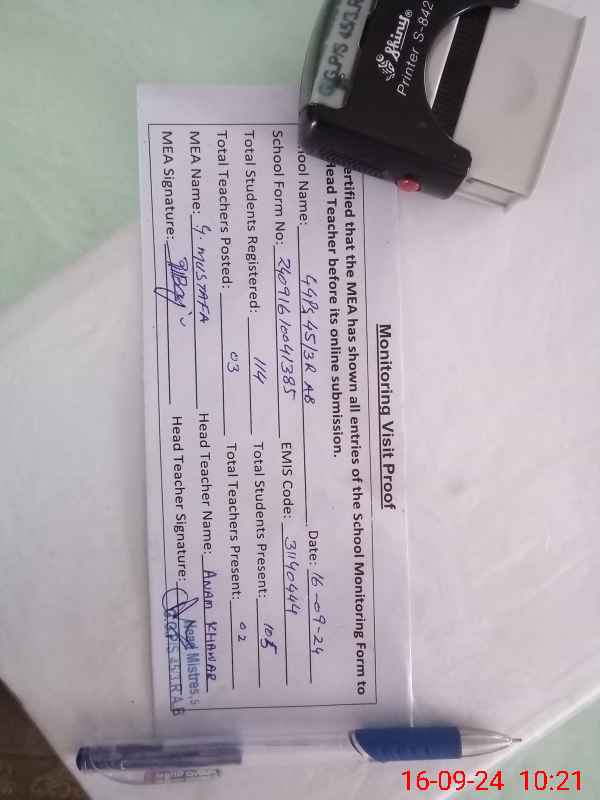 Monitoring Visit Proof
ertified that the MEA has shown all entries of the School Monitoring Form to
Head Teacher before its online submission.
hool Name: GGPS 45/3R AB Date: 16-09-24
School Form No: 24091610041385 EMIS Code: 31140444
Total Students Registered: 114 Total Students Present: 105
Total Teachers Posted: 03 Total Teachers Present: 02
MEA Name: G. MUSTAFA Head Teacher Name: ANAM KHAWAR
MEA Signature: Head Teacher Signature:
Head Mistress
G.G.P/S 45/3 R.A.B
Shiny®
Printer S-842
16-09-24 10:21